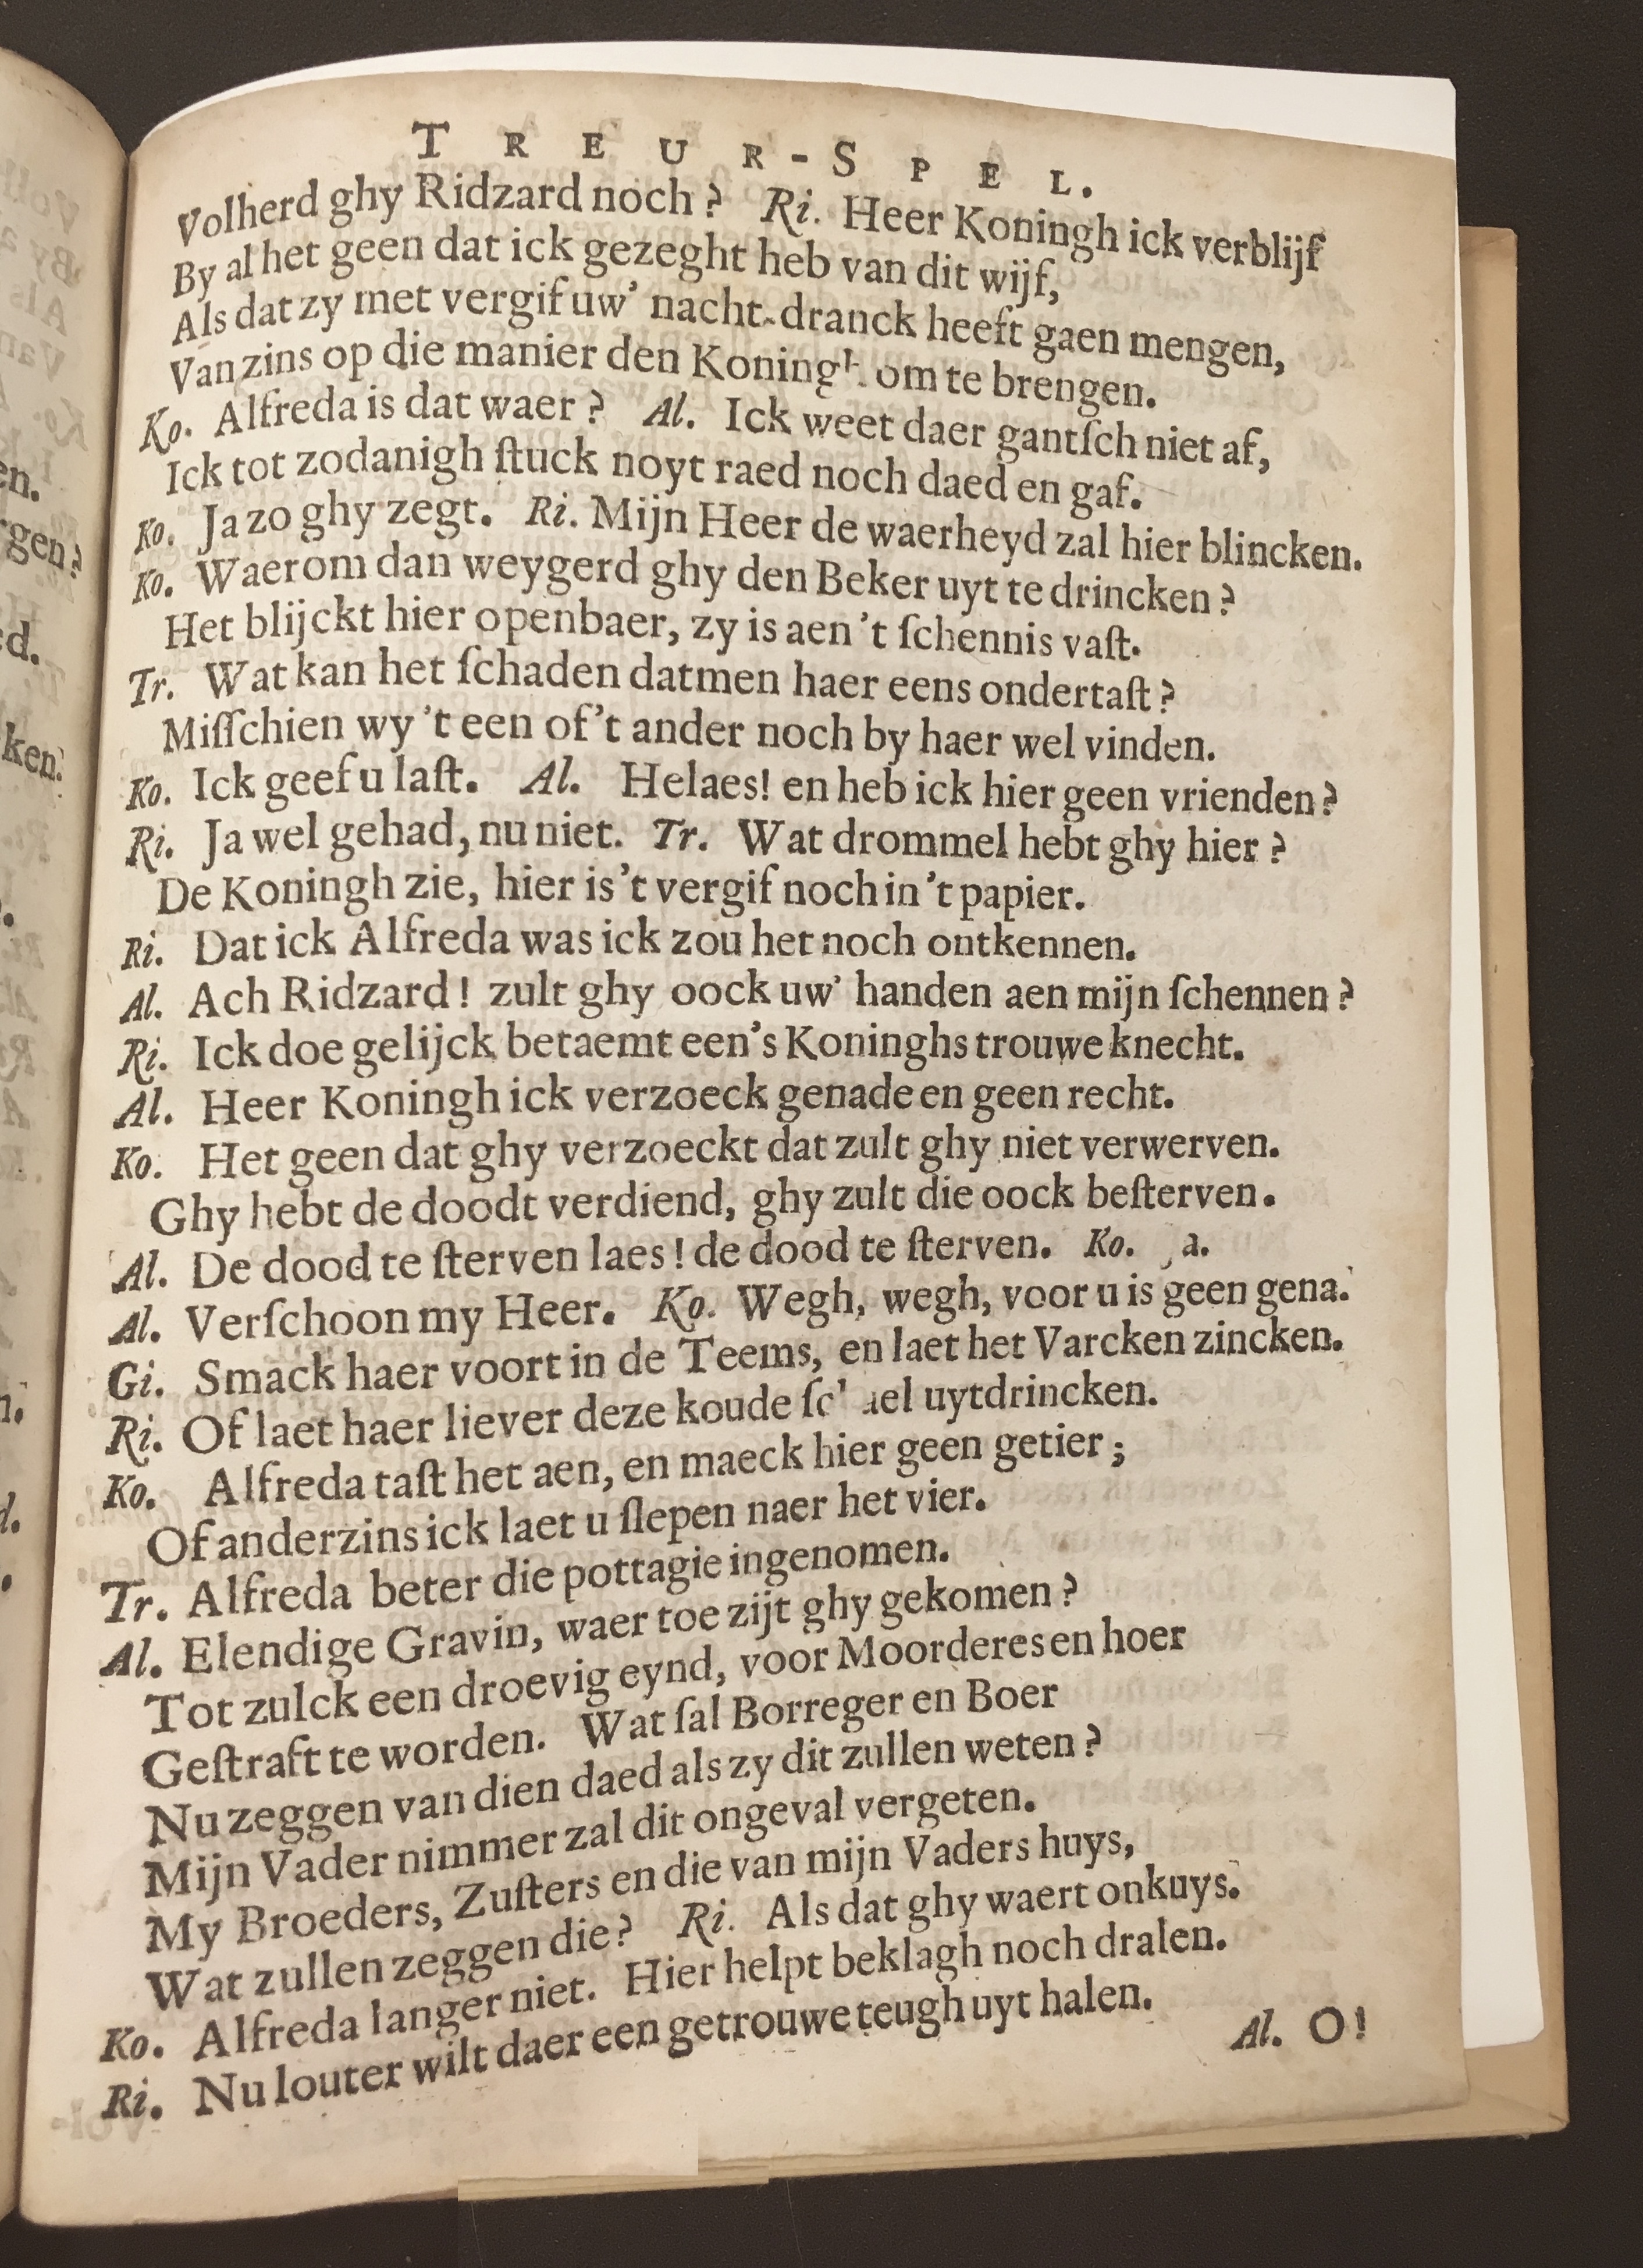 TREUR-SPEL.
Volherd ghy Ridzard noch? Ri. Heer Koningh ick verblijf
By al het geen dat ick gezeght heb van dit wijf,
Als dat zy met vergif uw' nacht-dranck heeft gaen mengen,
Van zins op die manier den Koningh om te brengen.
Ko. Alfreda is dat waer? Al. Ick weet daer gantſch niet af,
Ick tot zodanigh ſtuck noyt raed noch daed en gaf.
Ko. Ja zo ghy zegt. Ri. Mijn Heer de waerheyd zal hier blincken.
Ko. Waerom dan weygerd ghy den Beker uyt te drincken?
Het blijckt hier openbaer, zy is aen 't ſchennis vaſt.
Tr. Wat kan het ſchaden datmen haer eens ondertaſt?
Miſſchien wy 't een of 't ander noch by haer wel vinden.
Ko. Ick geef u laſt. Al. Helaes! en heb ick hier geen vrienden?
Ri. Ja wel gehad, nu niet. Tr. Wat drommel hebt ghy hier?
De Koningh zie, hier is 't vergif noch in 't papier.
Ri. Dat ick Alfreda was ick zou het noch ontkennen.
Al. Ach Ridzard! zult ghy oock uw' handen aen mijn ſchennen?
Ri. Ick doe gelijck betaemt een's Koninghs trouwe knecht.
Al. Heer Koningh ick verzoeck genade en geen recht.
Ko. Het geen dat ghy verzoeckt dat zult ghy niet verwerven.
Ghy hebt de doodt verdiend, ghy zult die oock beſterven.
Al. De dood te ſterven laes! de dood te ſterven. Ko. a.
Al. Verſchoon my Heer. Ko. Wegh, wegh, voor u is geen gena.
Gi. Smack haer voort in de Teems, en laet het Varcken zincken.
Ri. Of laet haer liever deze koude uytdrincken.
Ko. Alfreda taſt het aen, en maeck hier geen getier;
Of anderzins ick laet u ſlepen naer het vier.
Tr. Alfreda beter die pottagie ingenomen.
Al. Elendige Gravin, waer toe zijt ghy gekomen?
Tot zulck een droevig eynd, voor Moorderes en hoer
Geſtraft te worden. Wat ſal Borreger en Boer
Nu zeggen van dien daed als zy dit zullen weten?
Mijn Vader nimmer zal dit ongeval vergeten.
My Broeders, Zuſters en die van mijn Vaders huys,
Wat zullen zeggen die? Ri. Als dat ghy waert onkuys.
Ko. Alfreda langer niet. Hier helpt beklagh noch dralen.
Ri. Nu louter wilt daer een getrouwe teugh uyt halen.
Al. O!
en.
rgen?
ed.
ken.
n.
d.